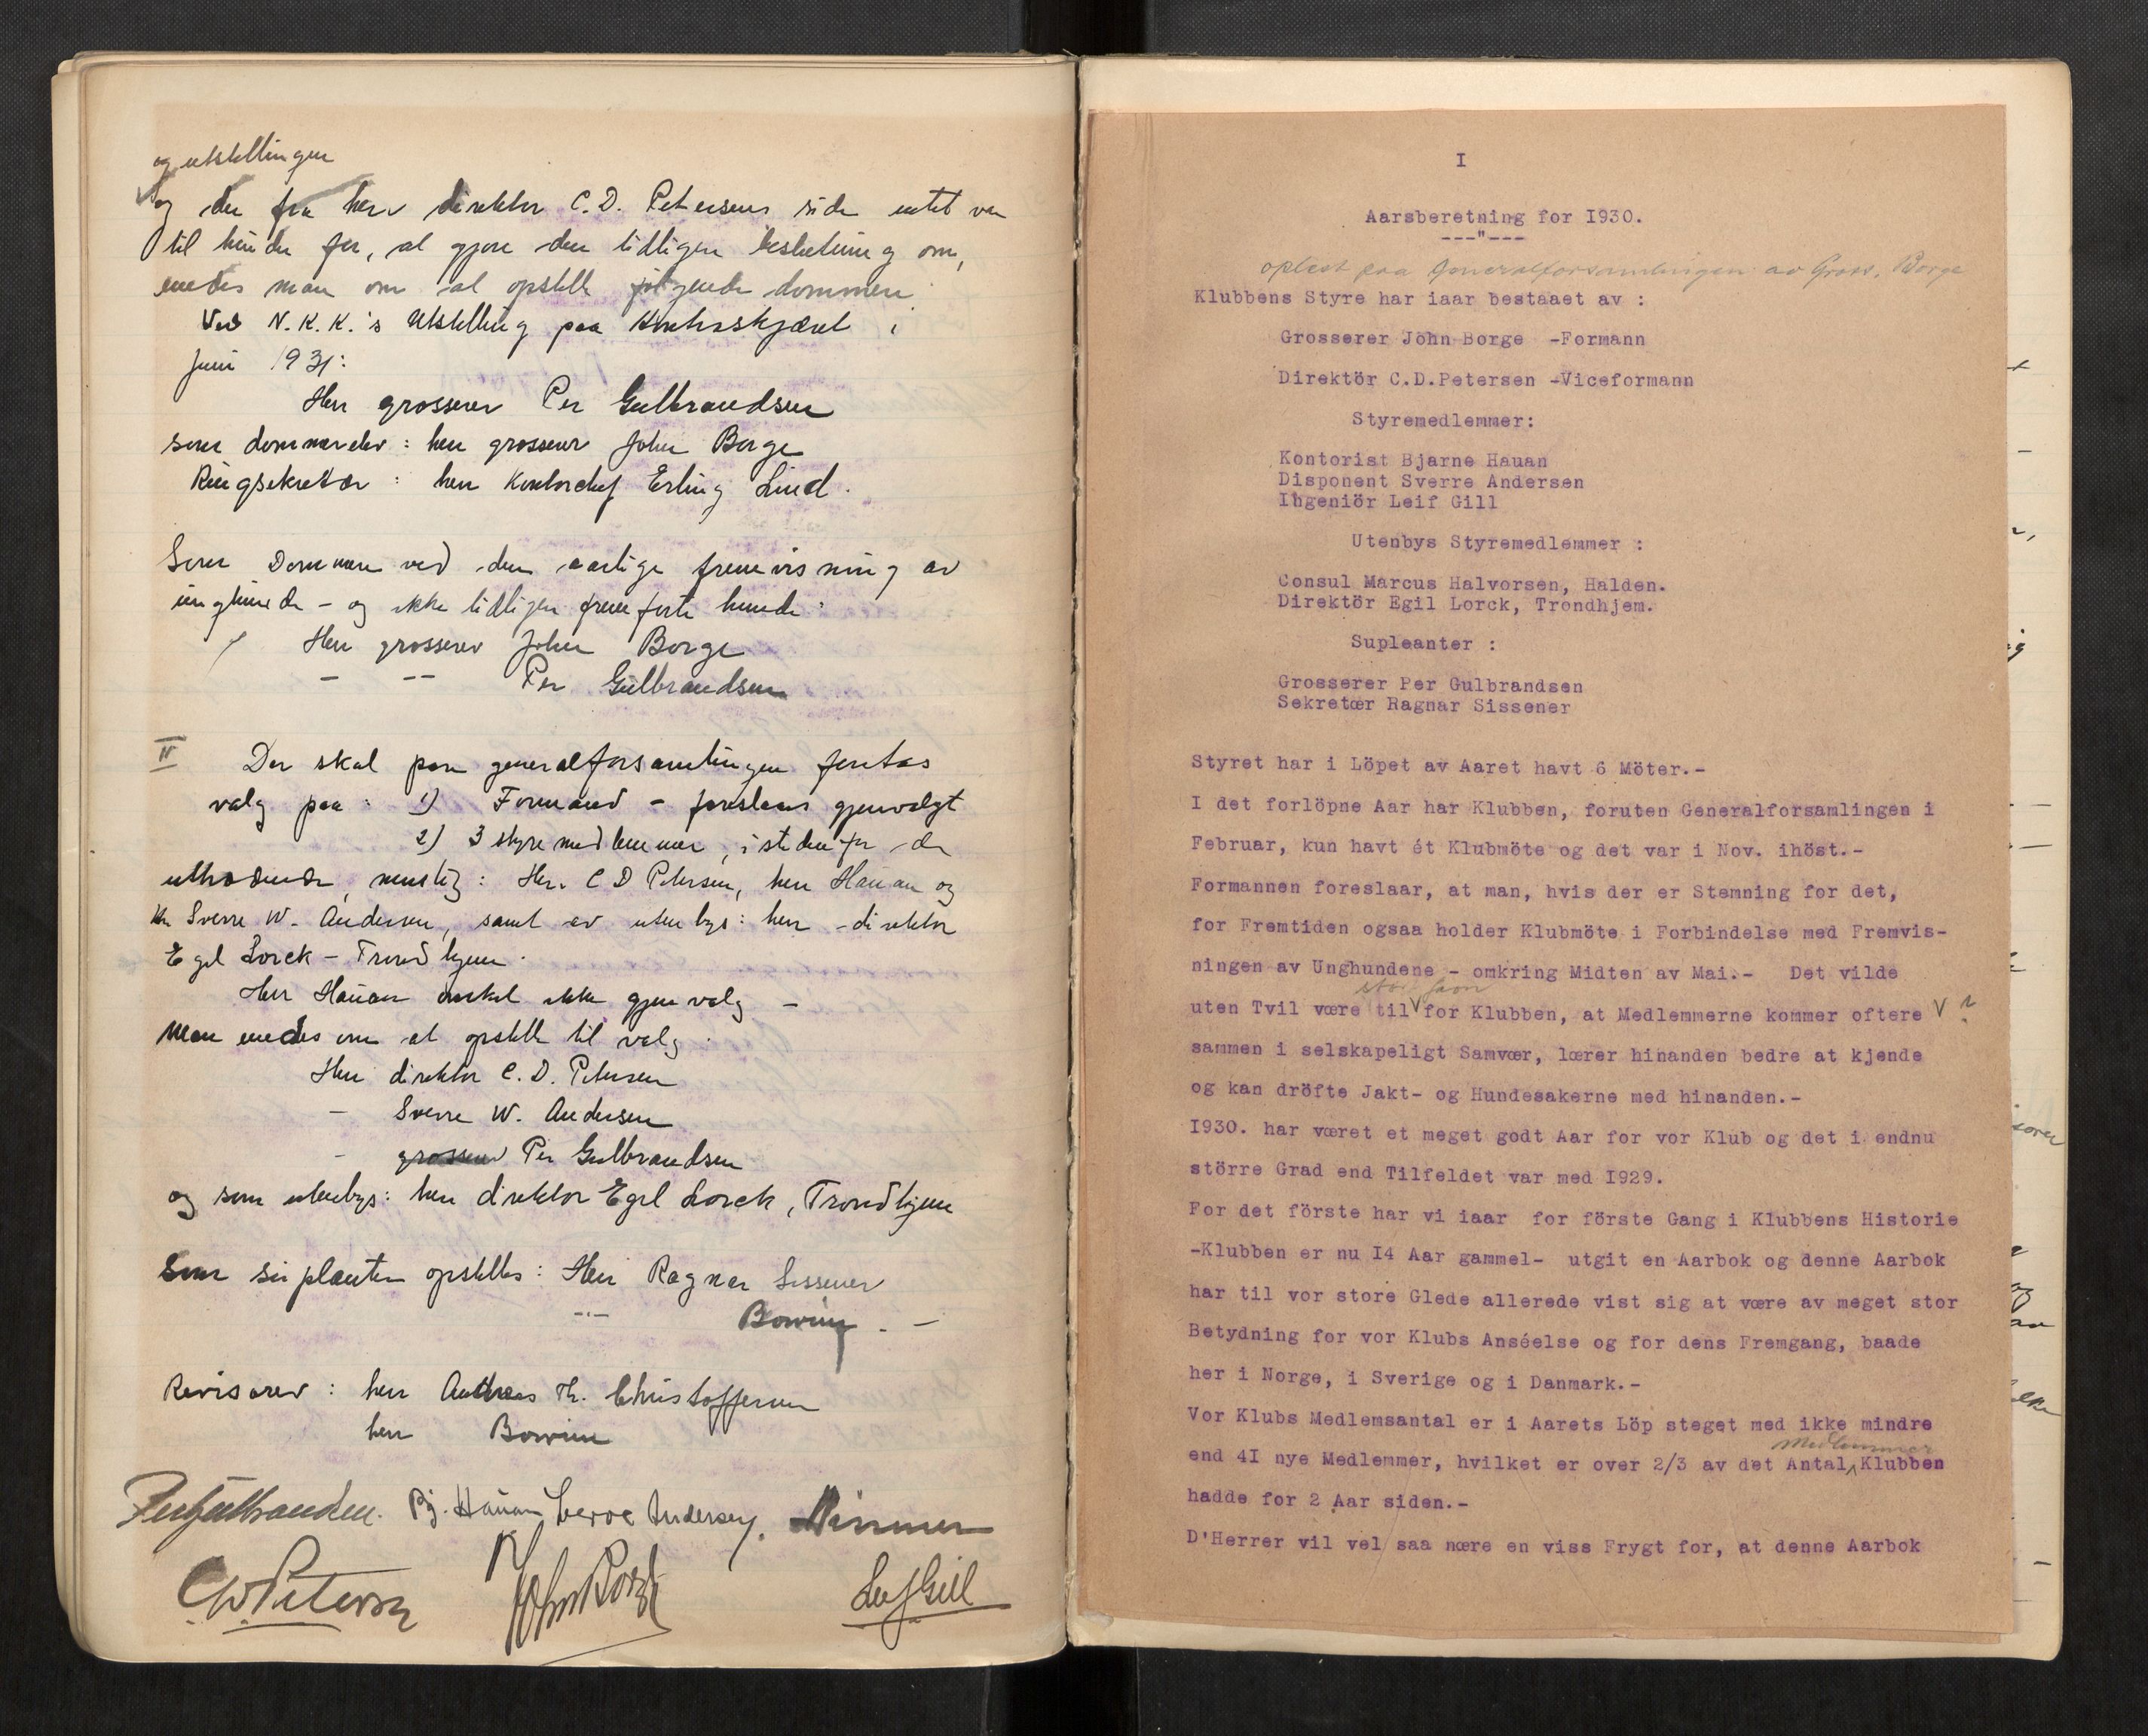 og utstillingen
og der fra herr direktør C.D. Petersens side intet var
til hinder for, at gjøre den tidligere beslutning om,
enedes man om at opstille følgende dommere
Ved N.K.K.'s Utstilling paa Kontraskjæret i
Juni 1931:
Herr grosserer Per Gulbrandsen
som dommerelev: herr grosserer John Borge
Ringsekretær: herr Kontorchef Erling Lind.
Som Dommere ved den aarlige fremvisning av
unghunde - og ikke tidligere fremførte hunde:
Herr grosserer John Borge
- -- Per Gulbrandsen
II Der skal paa generalforsamlingen foretas
valg paa: 1) Formand - foreslaaes gjenvalgt
2) 3 styremedlemmer, istedenfor de
uttrædende, nemlig: Herr C D Petersen, herr Hauan og
hr Sverre W. Andersen, samt av utenbys: herr direktør
Egil Lorck - Trondhjem.
Herr Hauan ønsket ikke gjenvalg -
Man enedes om at opstille til valg:
Herr direktør C. D. Petersen
- Sverre W. Andersen
- grosserer Per Gulbrandsen
og som utenbys: herr direktør Egil Lorck, Trondhjem
Som suplanter opstilles: Herr Ragnar Sissener
-"- Bowim . -
Revisorer: herr Andreas Th. Christoffersen
herr Bowim
Per Gulbrandsen. Bj. Hauan Sverre Andersen.
CD Petersen John Borge Leif Gill
I
Aarsberetning for I930.
---"---
oplest paa Generalforsamlingen av Gross. Borge
Klubbens Styre har iaar bestaaet av :
Grosserer John Borge -Formann
Direktör C.D.Petersen -Viceformann
Styremedlemmer:
Kontorist Bjarne Hauan
Disponent Sverre Andersen
Ingeniör Leif Gill
Utenbys Styremedlemmer :
Consul Marcus Halvorsen, Halden.
Direktör Egil Lorck, Trondhjem.
Supleanter :
Grosserer Per Gulbrandsen
Sekretær Ragnar Sissener
Styret har i Löpet av Aaret havt 6 Möter.-
I det forlöpne Aar har Klubben, foruten Generalforsamlingen i
Februar, kun havt ét Klubmöte og det var i Nov. ihöst.-
Formannen foreslaar, at man, hvis der er Stemning for det,
for Fremtiden ogsaa holder Klubmöte i Forbindelse med Fremvis-
ningen av Unghundene - omkring Midten av Mai.- Det vilde
stor gavn
uten Tvil være til V for Klubben, at Medlemmerne kommer oftere V ?
sammen i selskapeligt Samvær, lærer hinanden bedre at kjende
og kan dröfte Jakt- og Hundesakerne med hinanden.-
I930. har været et meget godt Aar for vor Klub og det i endnu
större Grad end Tilfeldet var med I929.
For det förste har vi iaar for förste Gang i Klubbens Historie
-Klubben er nu I4 Aar gammel- utgit en Aarbok og denne Aarbok
har til vor store Glede allerede vist sig at være av meget stor
Betydning for vor Klubs Anséelse og for dens Fremgang, baade
her i Norge, i Sverige og i Danmark.-
Vor Klubs Medlemsantal er i Aarets Löp steget med ikke mindre
medlemmer
end 4I nye Medlemmer, hvilket er over 2/3 av det Antal Klubben
hadde for 2 Aar siden.-
D'Herrer vil vel saa nære en viss Frygt for, at denne Aarbok